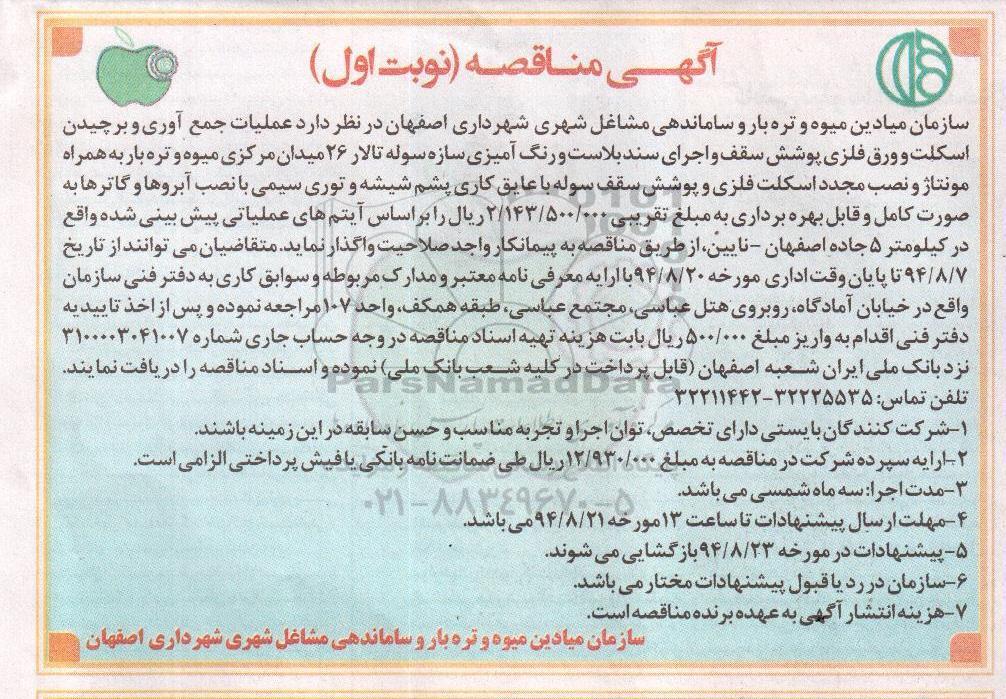 آگهی مناقصه (نوبت اول)
سازمان میادین میوه و تره بار و ساماندهی مشاغل شهری شهرداری اصفهان در نظر دارد عملیات جمع آوری و برچیدن
اسکلت و ورق فلزی پوشش سقف و اجرای سند بلاست و رنگ آمیزی سازه سوله تالار ۲۶ میدان مرکزی میوه و تره بار به همراه
مونتاژ و نصب مجدد اسکلت فلزی و پوشش سقف سوله با عایق کاری پشم شیشه و توری سیمی با نصب آبروها و گاترها به
صورت کامل و قابل بهره برداری به مبلغ تقریبی ۲/۱۴۳/۵۰۰/۰۰۰ ریال را بر اساس آیتم های عملیاتی پیش بینی شده واقع
در کیلومتر ۵ جاده اصفهان -نایین، از طریق مناقصه به پیمانکار واجد صلاحیت واگذار نماید. متقاضیان می توانند از تاریخ
۹۴/۸/۷ تا پایان وقت اداری مورخه ۹۴/۸/۲۰ با ارایه معرفی نامه معتبر و مدارک مربوطه و سوابق کاری به دفتر فنی سازمان
واقع در خیابان آمادگاه، روبروی هتل عباسی، مجتمع عباسی، طبقه همکف، واحد ۱۰۷ مراجعه نموده و پس از اخذ تاییدیه
دفتر فنی اقدام به واریز مبلغ ۵۰۰/۰۰۰ ریال بابت هزینه تهیه اسناد مناقصه در وجه حساب جاری شماره ۳۱۰۰۰۰۳۰۴۱۰۰۷
نزد بانک ملی ایران شعبه اصفهان (قابل پرداخت در کلیه شعب بانک ملی) نموده و اسناد مناقصه را دریافت نمایند.
تلفن تماس: ۳۲۲۲۵۵۳۵-۳۲۲۱۱۴۴۲
۱-شرکت کنندگان بایستی دارای تخصص، توان اجرا و تجربه مناسب و حسن سابقه در این زمینه باشند.
۲-ارایه سپرده شرکت در مناقصه به مبلغ ۱۲/۹۳۰/۰۰۰ ریال طی ضمانت نامه بانکی یا فیش پرداختی الزامی است.
۳-مدت اجرا: سه ماه شمسی می باشد.
۴-مهلت ارسال پیشنهادات تا ساعت ۱۳ مورخه ۹۴/۸/۲۱ می باشد.
۵-پیشنهادات در مورخه ۹۴/۸/۲۳ بازگشایی می شوند.
۶-سازمان در رد یا قبول پیشنهادات مختار می باشد.
۷-هزینه انتشار آگهی به عهده برنده مناقصه است.
سازمان میادین میوه و تره بار و ساماندهی مشاغل شهری شهرداری اصفهان
ParsNamadData
۰۲۱-۸۸۳۴۹۶۷۰-۵